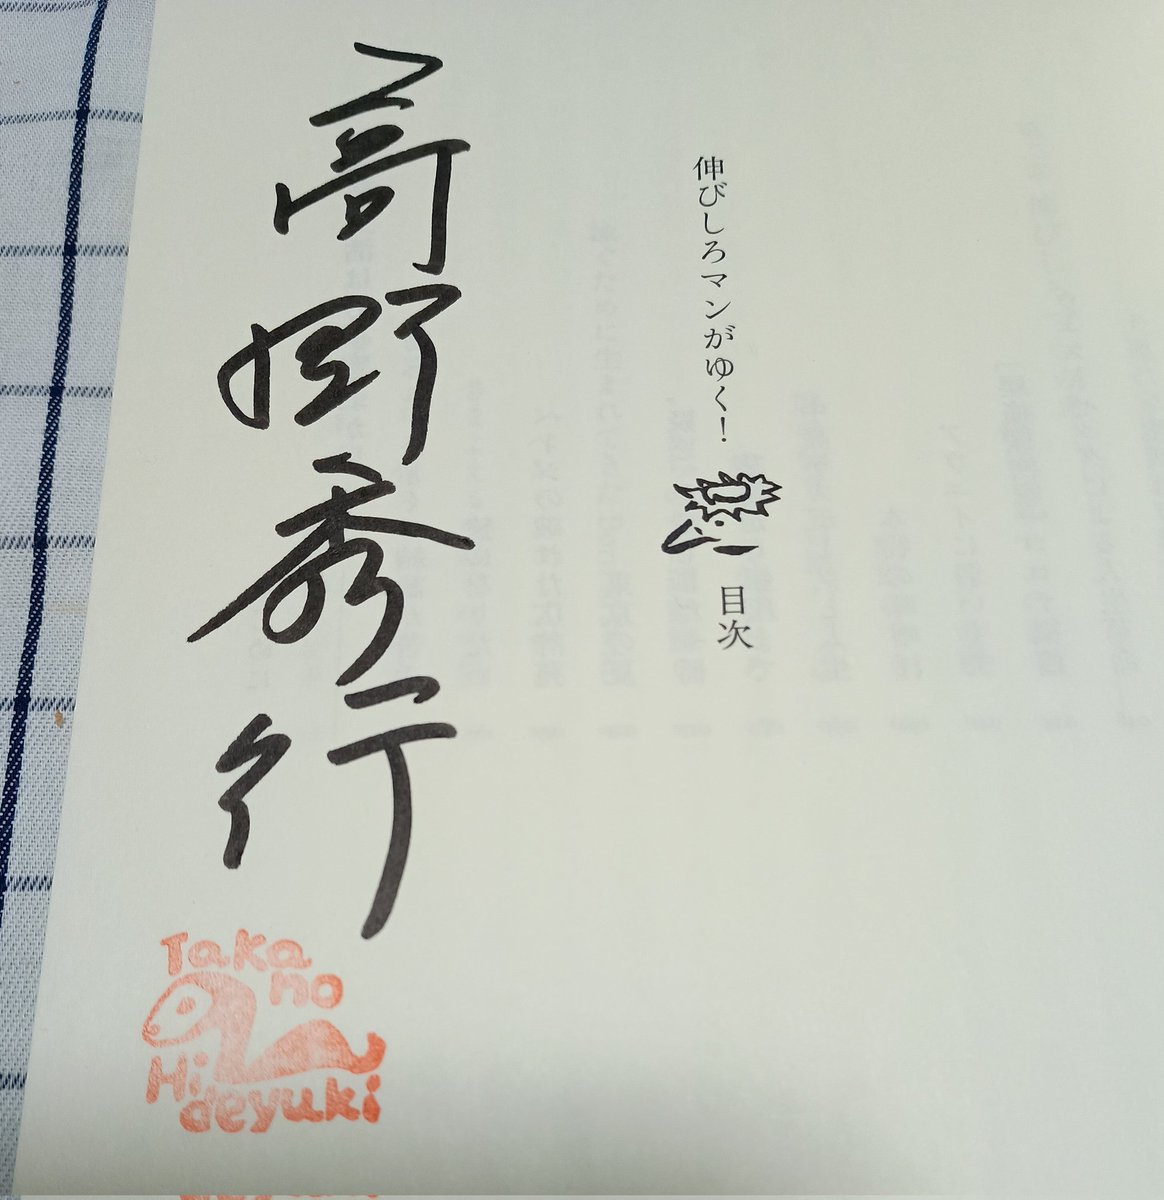 伸びしろマンがゆく！
目次
高野秀行
Taka
no
Hi
deyuki